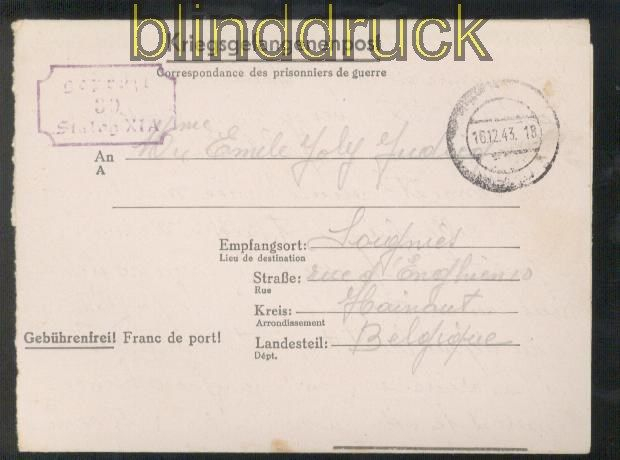 blinddruck
Kriegsgefangenenpost
Correspondance des prisonniers de guerre
Geprüft
Stalag XI A
16.12.43. 18
An Mme Emile Joly
A
Empfangsort: Soignies
Lieu de destination
Straße: rue d'Enghien
Rue
Kreis: Hainaut
Arrondissement
Gebührenfrei! Franc de port!
Landesteil: Belgique
Dépt.